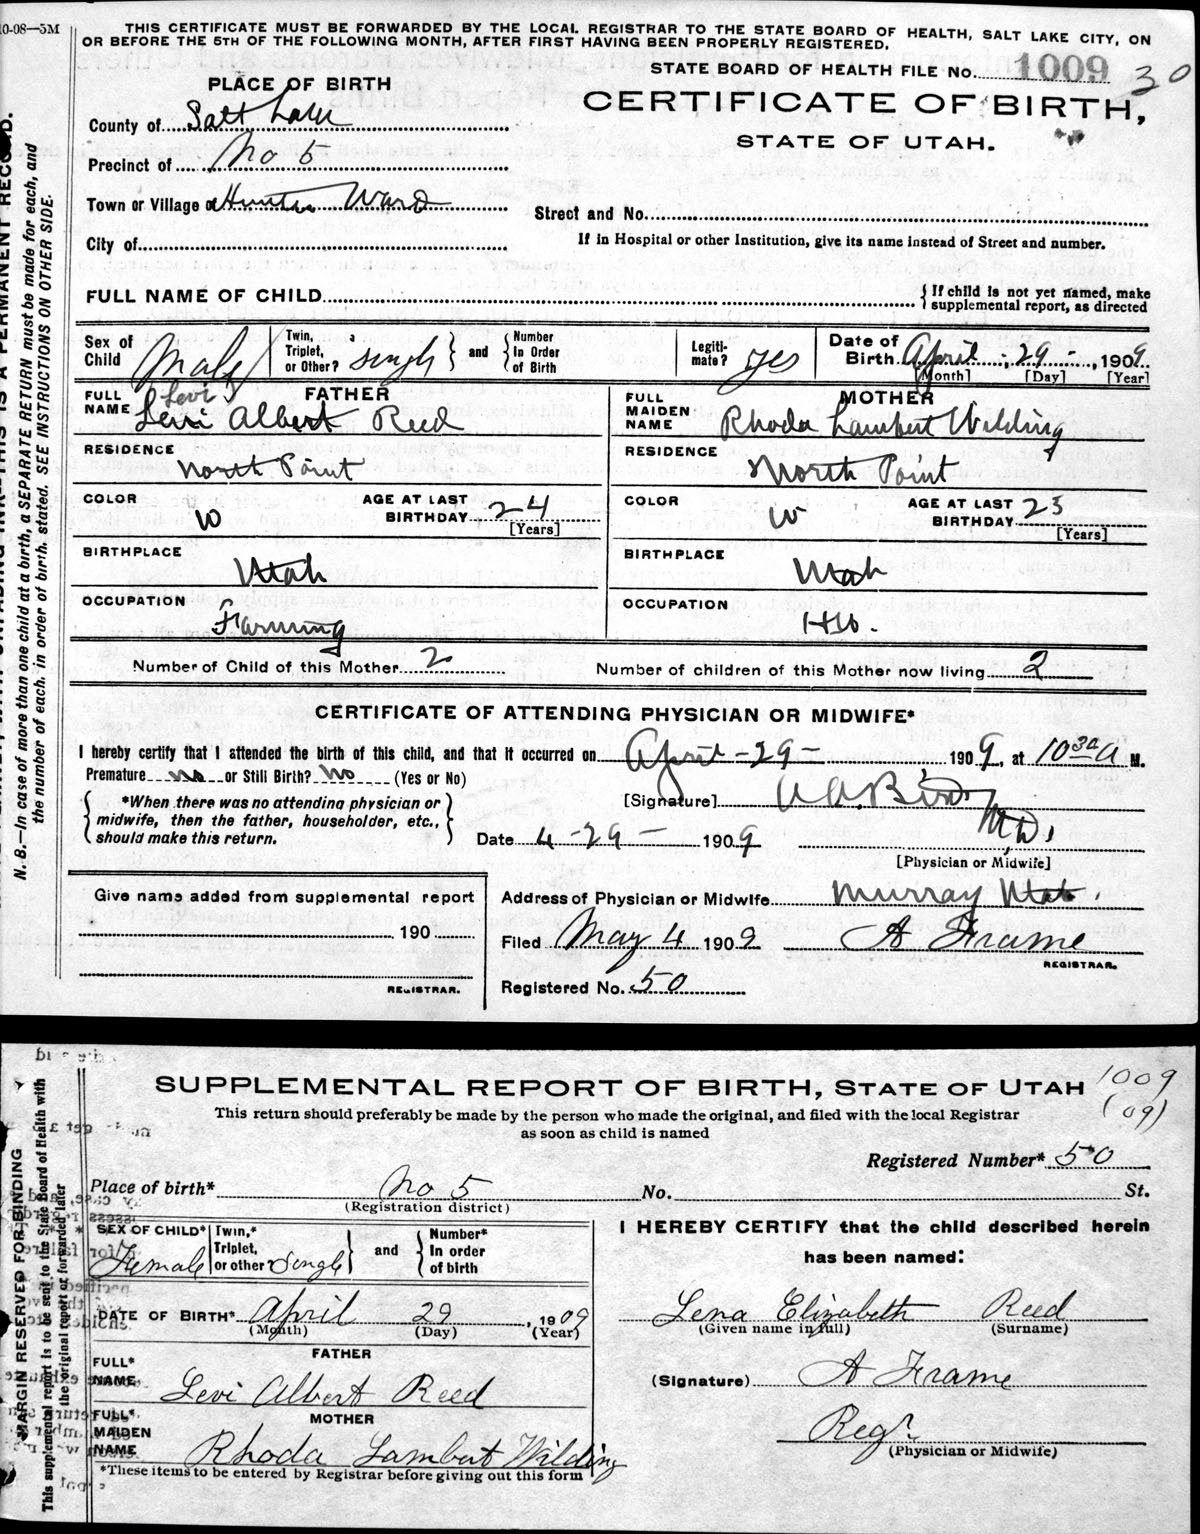 10-08—5M
THIS CERTIFICATE MUST BE FORWARDED BY THE LOCAL REGISTRAR TO THE STATE BOARD OF HEALTH, SALT LAKE CITY, ON
OR BEFORE THE 5TH OF THE FOLLOWING MONTH, AFTER FIRST HAVING BEEN PROPERLY REGISTERED.
STATE BOARD OF HEALTH FILE No. 1009 30
PLACE OF BIRTH
CERTIFICATE OF BIRTH,
STATE OF UTAH.
County of Salt Lake
Precinct of No 5
Town or Village of Hunter Ward
Street and No.
City of
If in Hospital or other Institution, give its name instead of Street and number.
FULL NAME OF CHILD { If child is not yet named, make
supplemental report, as directed
Sex of Child Male
Twin, Triplet, or Other? single } and { Number In Order of Birth
Legiti-mate? yes
Date of Birth April 29 1909
[Month] [Day] [Year]
FATHER
FULL NAME Levi
Levi Albert Reed
MOTHER
FULL MAIDEN NAME Rhoda Lambert Wilding
RESIDENCE North Point
RESIDENCE North Point
COLOR W AGE AT LAST BIRTHDAY 24 [Years]
COLOR W AGE AT LAST BIRTHDAY 23 [Years]
BIRTHPLACE Utah
BIRTHPLACE Utah
OCCUPATION Farming
OCCUPATION HW.
Number of Child of this Mother 2 Number of children of this Mother now living 2
CERTIFICATE OF ATTENDING PHYSICIAN OR MIDWIFE*
I hereby certify that I attended the birth of this child, and that it occurred on April -29- 1909, at 10 30 A M.
Premature no or Still Birth? No (Yes or No)
*When there was no attending physician or
midwife, then the father, householder, etc.,
should make this return.
[Signature] M.D.
Date 4-29- 1909
[Physician or Midwife]
Give name added from supplemental report
190
REGISTRAR.
Address of Physician or Midwife Murray Utah.
Filed May 4 1909 A Frame
REGISTRAR.
Registered No. 50
N. B.—In case of more than one child at a birth, a SEPARATE RETURN must be made for each, and
the number of each, in order of birth, stated. SEE INSTRUCTIONS ON OTHER SIDE.
THIS IS A PERMANENT RECORD.
SUPPLEMENTAL REPORT OF BIRTH, STATE OF UTAH 1009
(09)
This return should preferably be made by the person who made the original, and filed with the local Registrar
as soon as child is named
Registered Number* 50
Place of birth* No 5 No. St.
(Registration district)
SEX OF CHILD* Female
Twin,* Triplet, or other? Single } and { Number* In order of birth
I HEREBY CERTIFY that the child described herein
has been named:
DATE OF BIRTH* April 29, 1909
(Month) (Day) (Year)
Lena Elizabeth Reed
(Given name in full) (Surname)
FATHER
FULL* NAME Levi Albert Reed
(Signature) A Frame
MOTHER
FULL* MAIDEN NAME Rhoda Lambert Wilding
Regr
(Physician or Midwife)
*These items to be entered by Registrar before giving out this form
MARGIN RESERVED FOR BINDING
This supplemental report is to be sent to the State Board of Health with
the original report or forwarded later